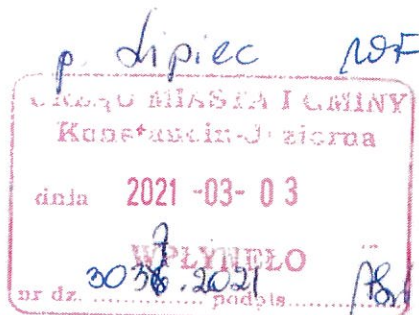 p. Lipiec WF
URZĄD MIASTA I GMINY
Konstancin-Jeziorna
dnia 2021 -03- 03
WPŁYNĘŁO
nr dz. .2021 podpis